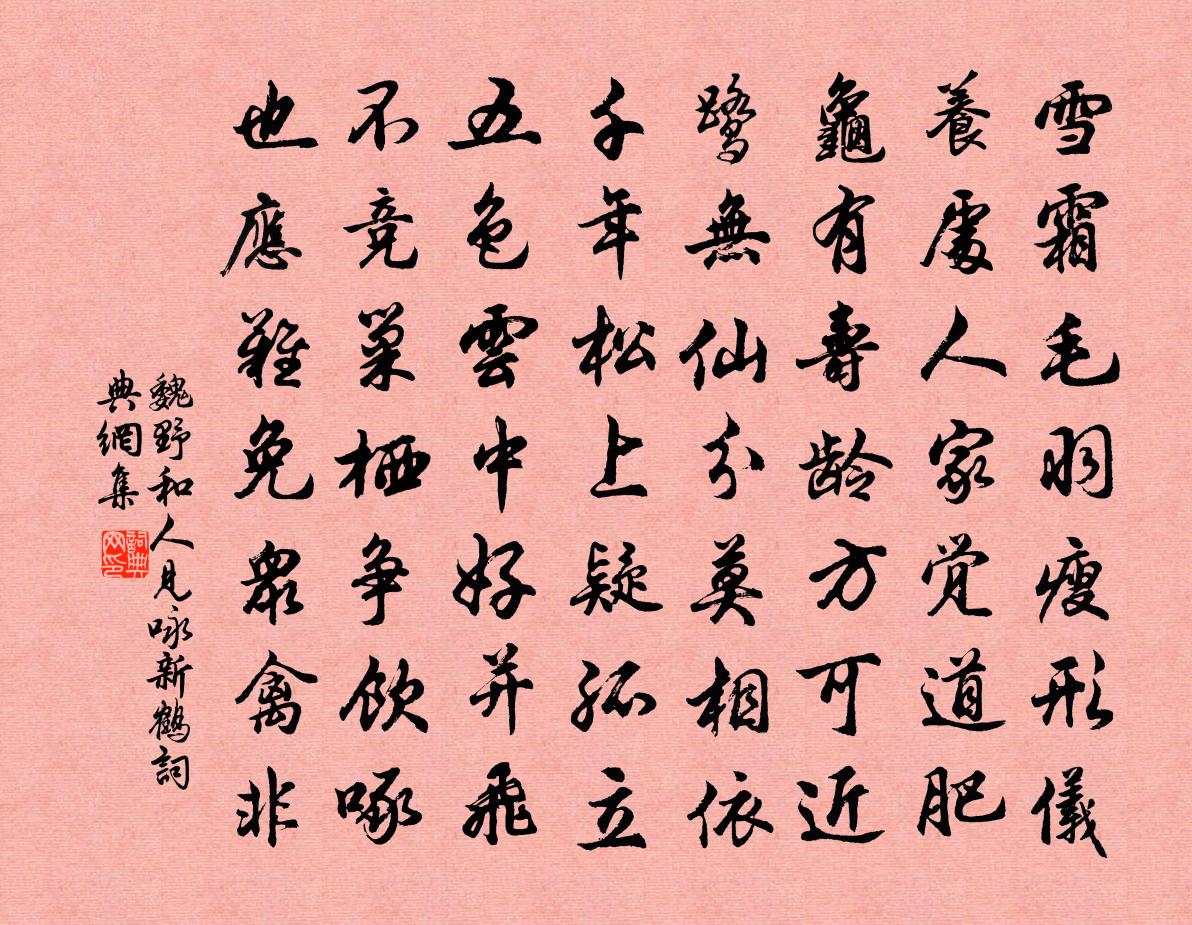 雪霜毛羽瘦形儀
養處人家覺道肥
龜有壽齡方可近
鷺無仙分莫相依
千年松上疑孤立
五色雲中好并飛
不竞巢栖争飲啄
也應難免衆禽非
魏野和人見咏新鶴詞
典網集
詞典网印